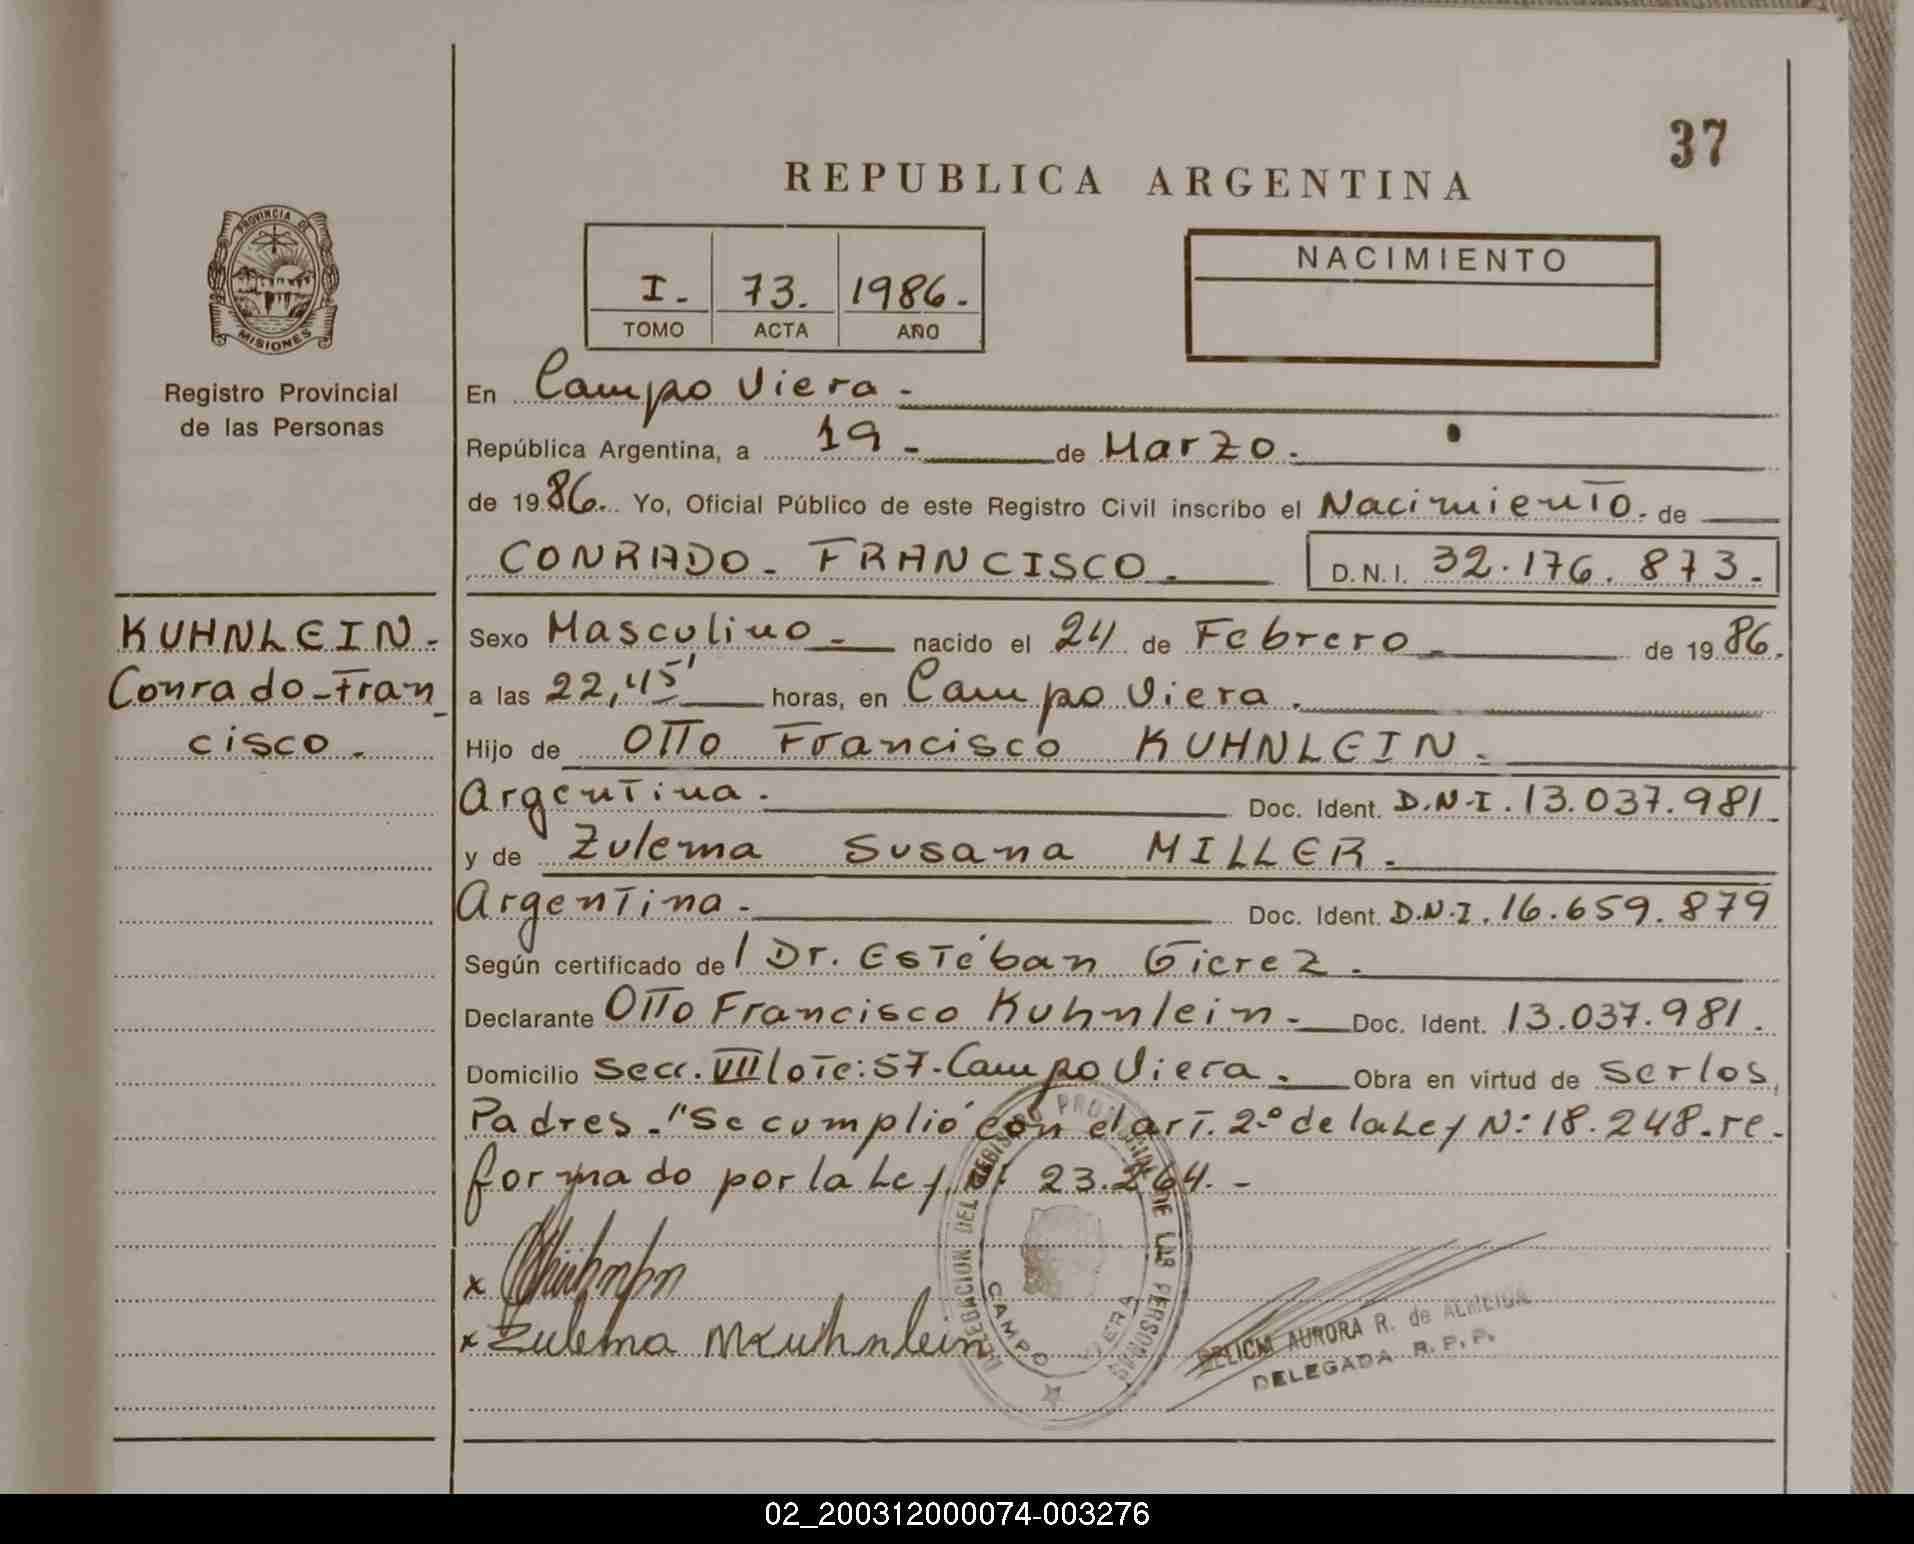 37
REPUBLICA ARGENTINA
PROVINCIA DE
MISIONES
Registro Provincial
de las Personas
I. 73. 1986.
TOMO ACTA AÑO
NACIMIENTO
En Campo Viera.
República Argentina, a 19 de Marzo.
de 1986. Yo, Oficial Público de este Registro Civil inscribo el Nacimiento. de
CONRADO - FRANCISCO. D.N.I. 32.176.873.
KUHNLEIN -
Conrado-Fran
cisco.
Sexo Masculino nacido el 24 de Febrero de 1986.
a las 22,45' horas, en Campo Viera.
Hijo de Otto Francisco KUHNLEIN.
Argentina. Doc. Ident. D.N.I. 13.037.981
y de Zulema Susana MILLER.
Argentina. Doc. Ident. D.N.I. 16.659.879
Según certificado del Dr. Estéban Gierez.
Declarante Otto Francisco Kuhnlein. Doc. Ident. 13.037.981.
Domicilio Secc. VII lote: 57. Campo Viera. Obra en virtud de ser los
Padres. "Se cumplió con el art. 2º de la Ley Nº 18.248. re-
formado por la Ley Nº 23.264. -
x
x Zulema M Kuhnlein
DELEGACION DEL REGISTRO PROVINCIAL DE LAS PERSONAS
CAMPO VIERA
AURORA R. de ALMEIDA
DELEGADA R. P. P.
02_200312000074-003276